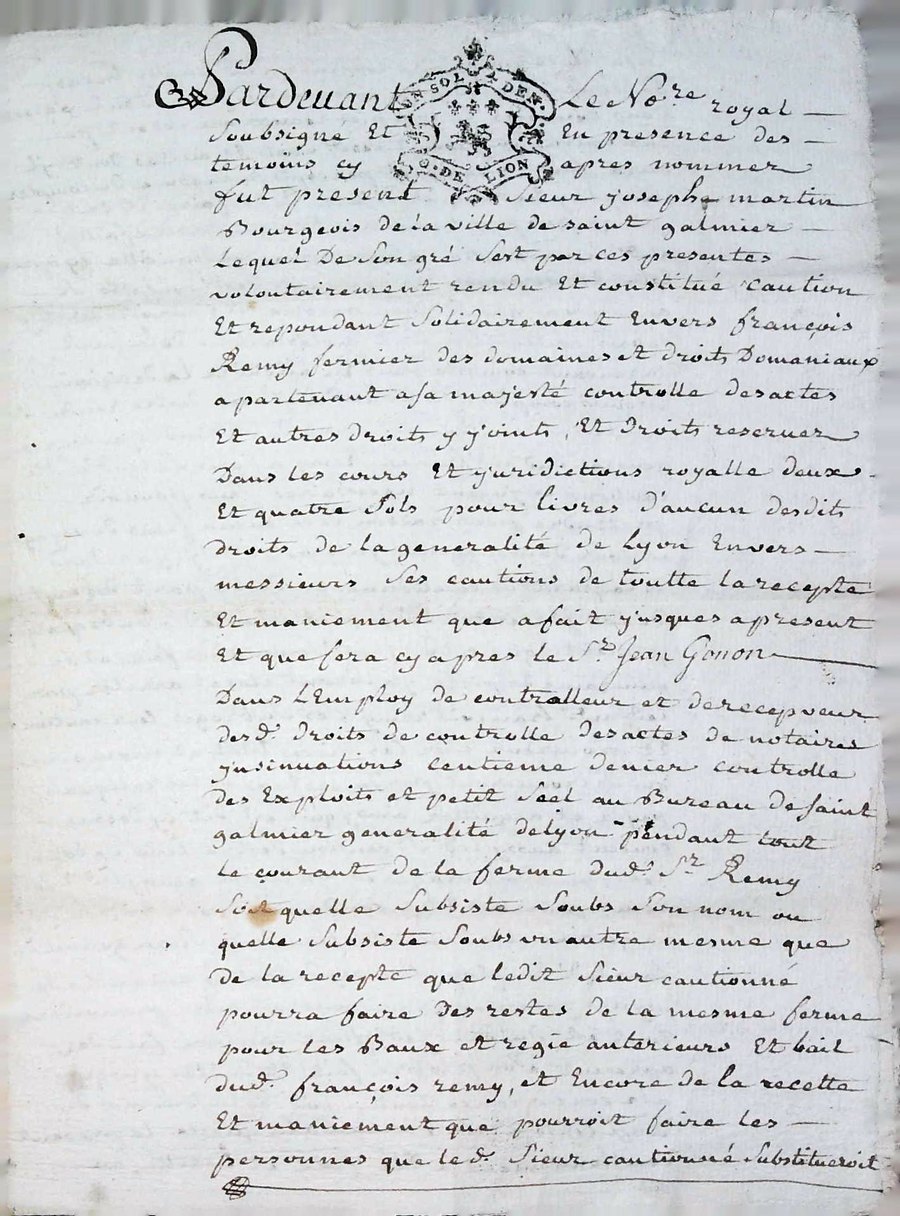 Pardevant Le No.re royal
UN SOL 4 DEN.
G. DE LION
Soubsigné Et En presence des
temoins cy apres nommez
fut present Sieur joseph martin
Bourgeois de la ville de saint galmier
Lequel De Son gré Sest par ces presentes
volontairement rendu Et constitué caution
Et repondant Solidairement Envers françois
Remy fermier des domaines et droits Domaniaux
apartenant a sa majesté controlle des actes
Et autres droits y joints, Et droits reservez
Dans les cours Et juridictions royalle deux
Et quatre Sols pour livres d'aucun desdits
droits de la generalité de Lyon Envers
messieurs Ses cautions de toutte la recepte
Et maniement que a fait jusques a present
Et que fera cy apres le Sr. Jean Gonon
Dans L'Employ de controlleur et de recepveur
desd. droits de controlle des actes de notaires
jnsinuations centieme denier controlle
des Exploits et petit Scel au Bureau de saint
galmier generalité de lyon pendant tout
le courant de la ferme dud. Sr. Remy
Soit quelle Subsiste Soubs Son nom ou
quelle Subsiste Soubs un autre mesme que
de la recepte que ledit Sieur cautionné
pourra faire Des restes de la mesme ferme
pour les Baux et regie anterieurs Et bail
dud. françois remy, et Encore de la recette
Et maniement que pourroit faire les
personnes que led. Sieur cautionné Substitueroit